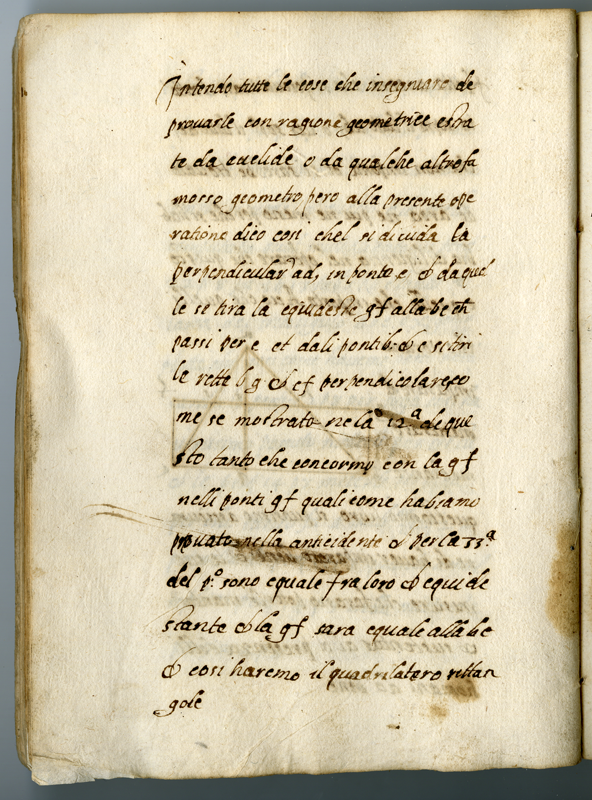 Intendo tutte le cose che insegniaro de
provarle con ragione geometrice estra
te da euclide o da qualche altro fa
moso geometro pero alla presente ope
ratione dico cosi chel si divida la
perpendicular ad, in ponto e & da quel
le se tira la equideste gf alla be ch
passi per e et dali ponti b. & c si tiri
le rette bg & cf perpendicolare, co
me se mostrato ne la 12ª de que
sto tanto che concorino con la gf
nelli ponti gf quali come habiamo
provato nella antecidente & per la 33ª
del pº sono equale fra loro & equide
stante & la gf sara equale alla bc
& cosi haremo il quadrilatero rettan
gole